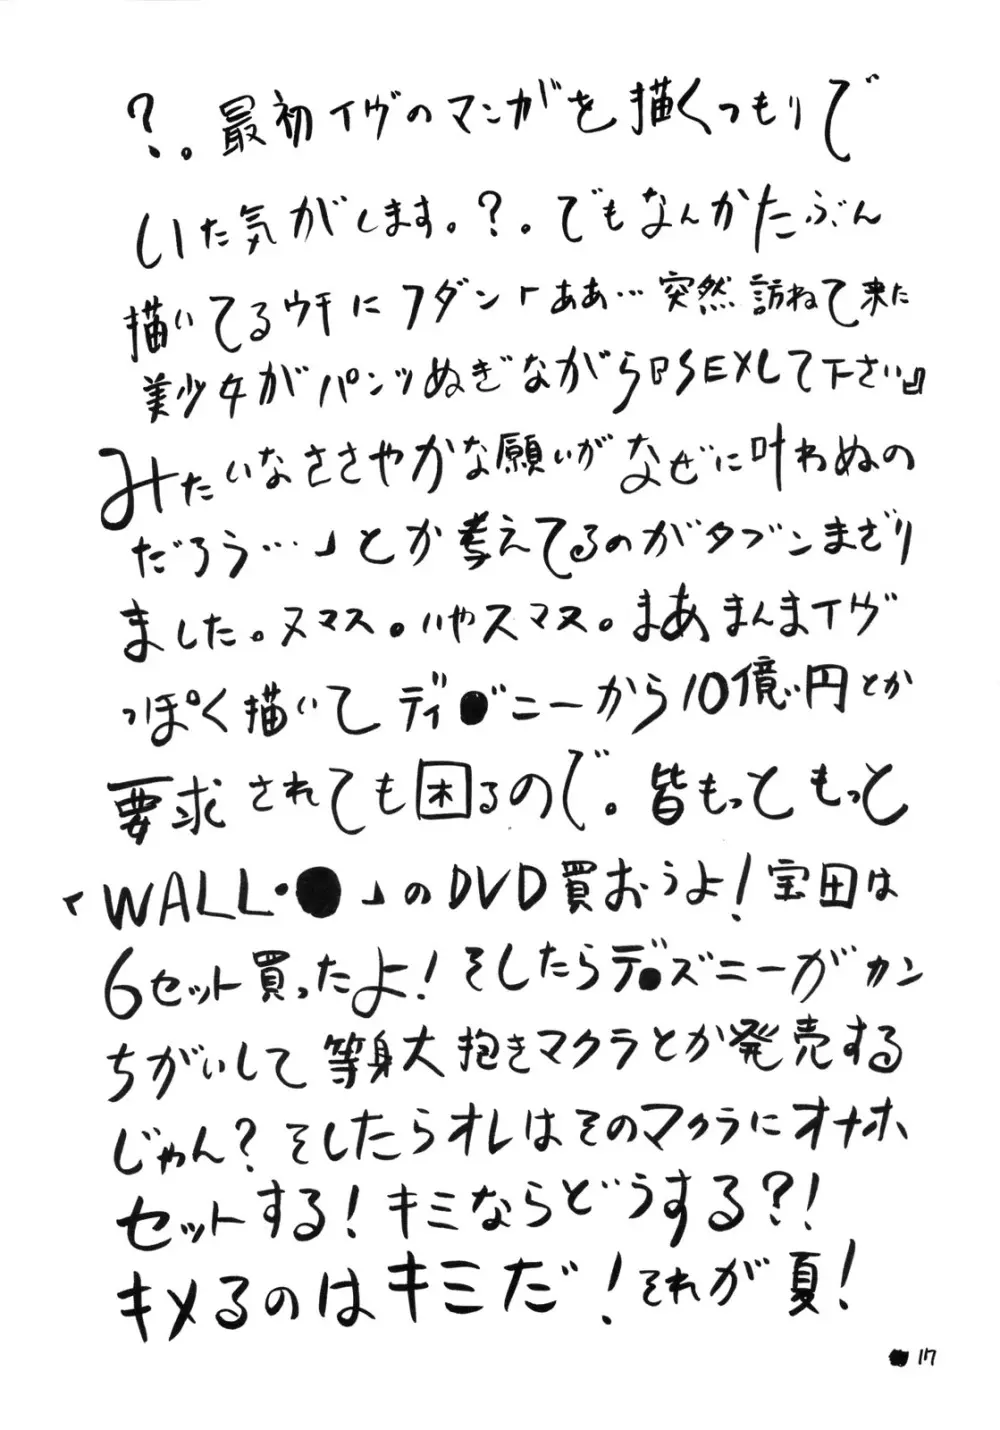 ?。最初イヴのマンガを描くつもりで
いた気がします。?。でもなんかたぶん
描いてるウチにフダン「ああ…突然訪ねて来た
美少女がパンツぬぎながら『SEXして下さい』
みたいなささやかな願いがなぜに叶わぬの
だろう…」とか考えてるのがタブンまざり
ました。ヌマス。いやスマヌ。まあまんまイヴ
っぽく描いてディ●゛ニーから10億円とか
要求されても困るので。皆もっともっと
「WALL・●」のDVD買おうよ!宝田は
6セット買ったよ!そしたらデ●ズニーがカン
ちがいして等身大抱きマクラとか発売する
じゃん?そしたらオレはそのマクラにオナホ
セットする!キミならどうする?!
キメるのはキミだ!それが夏!
●17